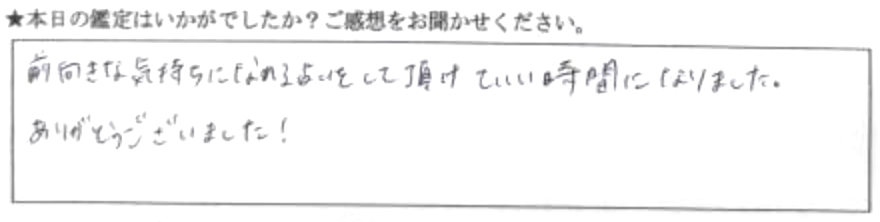 ★本日の鑑定はいかがでしたか？ご感想をお聞かせください。
前向きな気持ちになれる占いをして頂けていい時間になりました。
ありがとうございました！